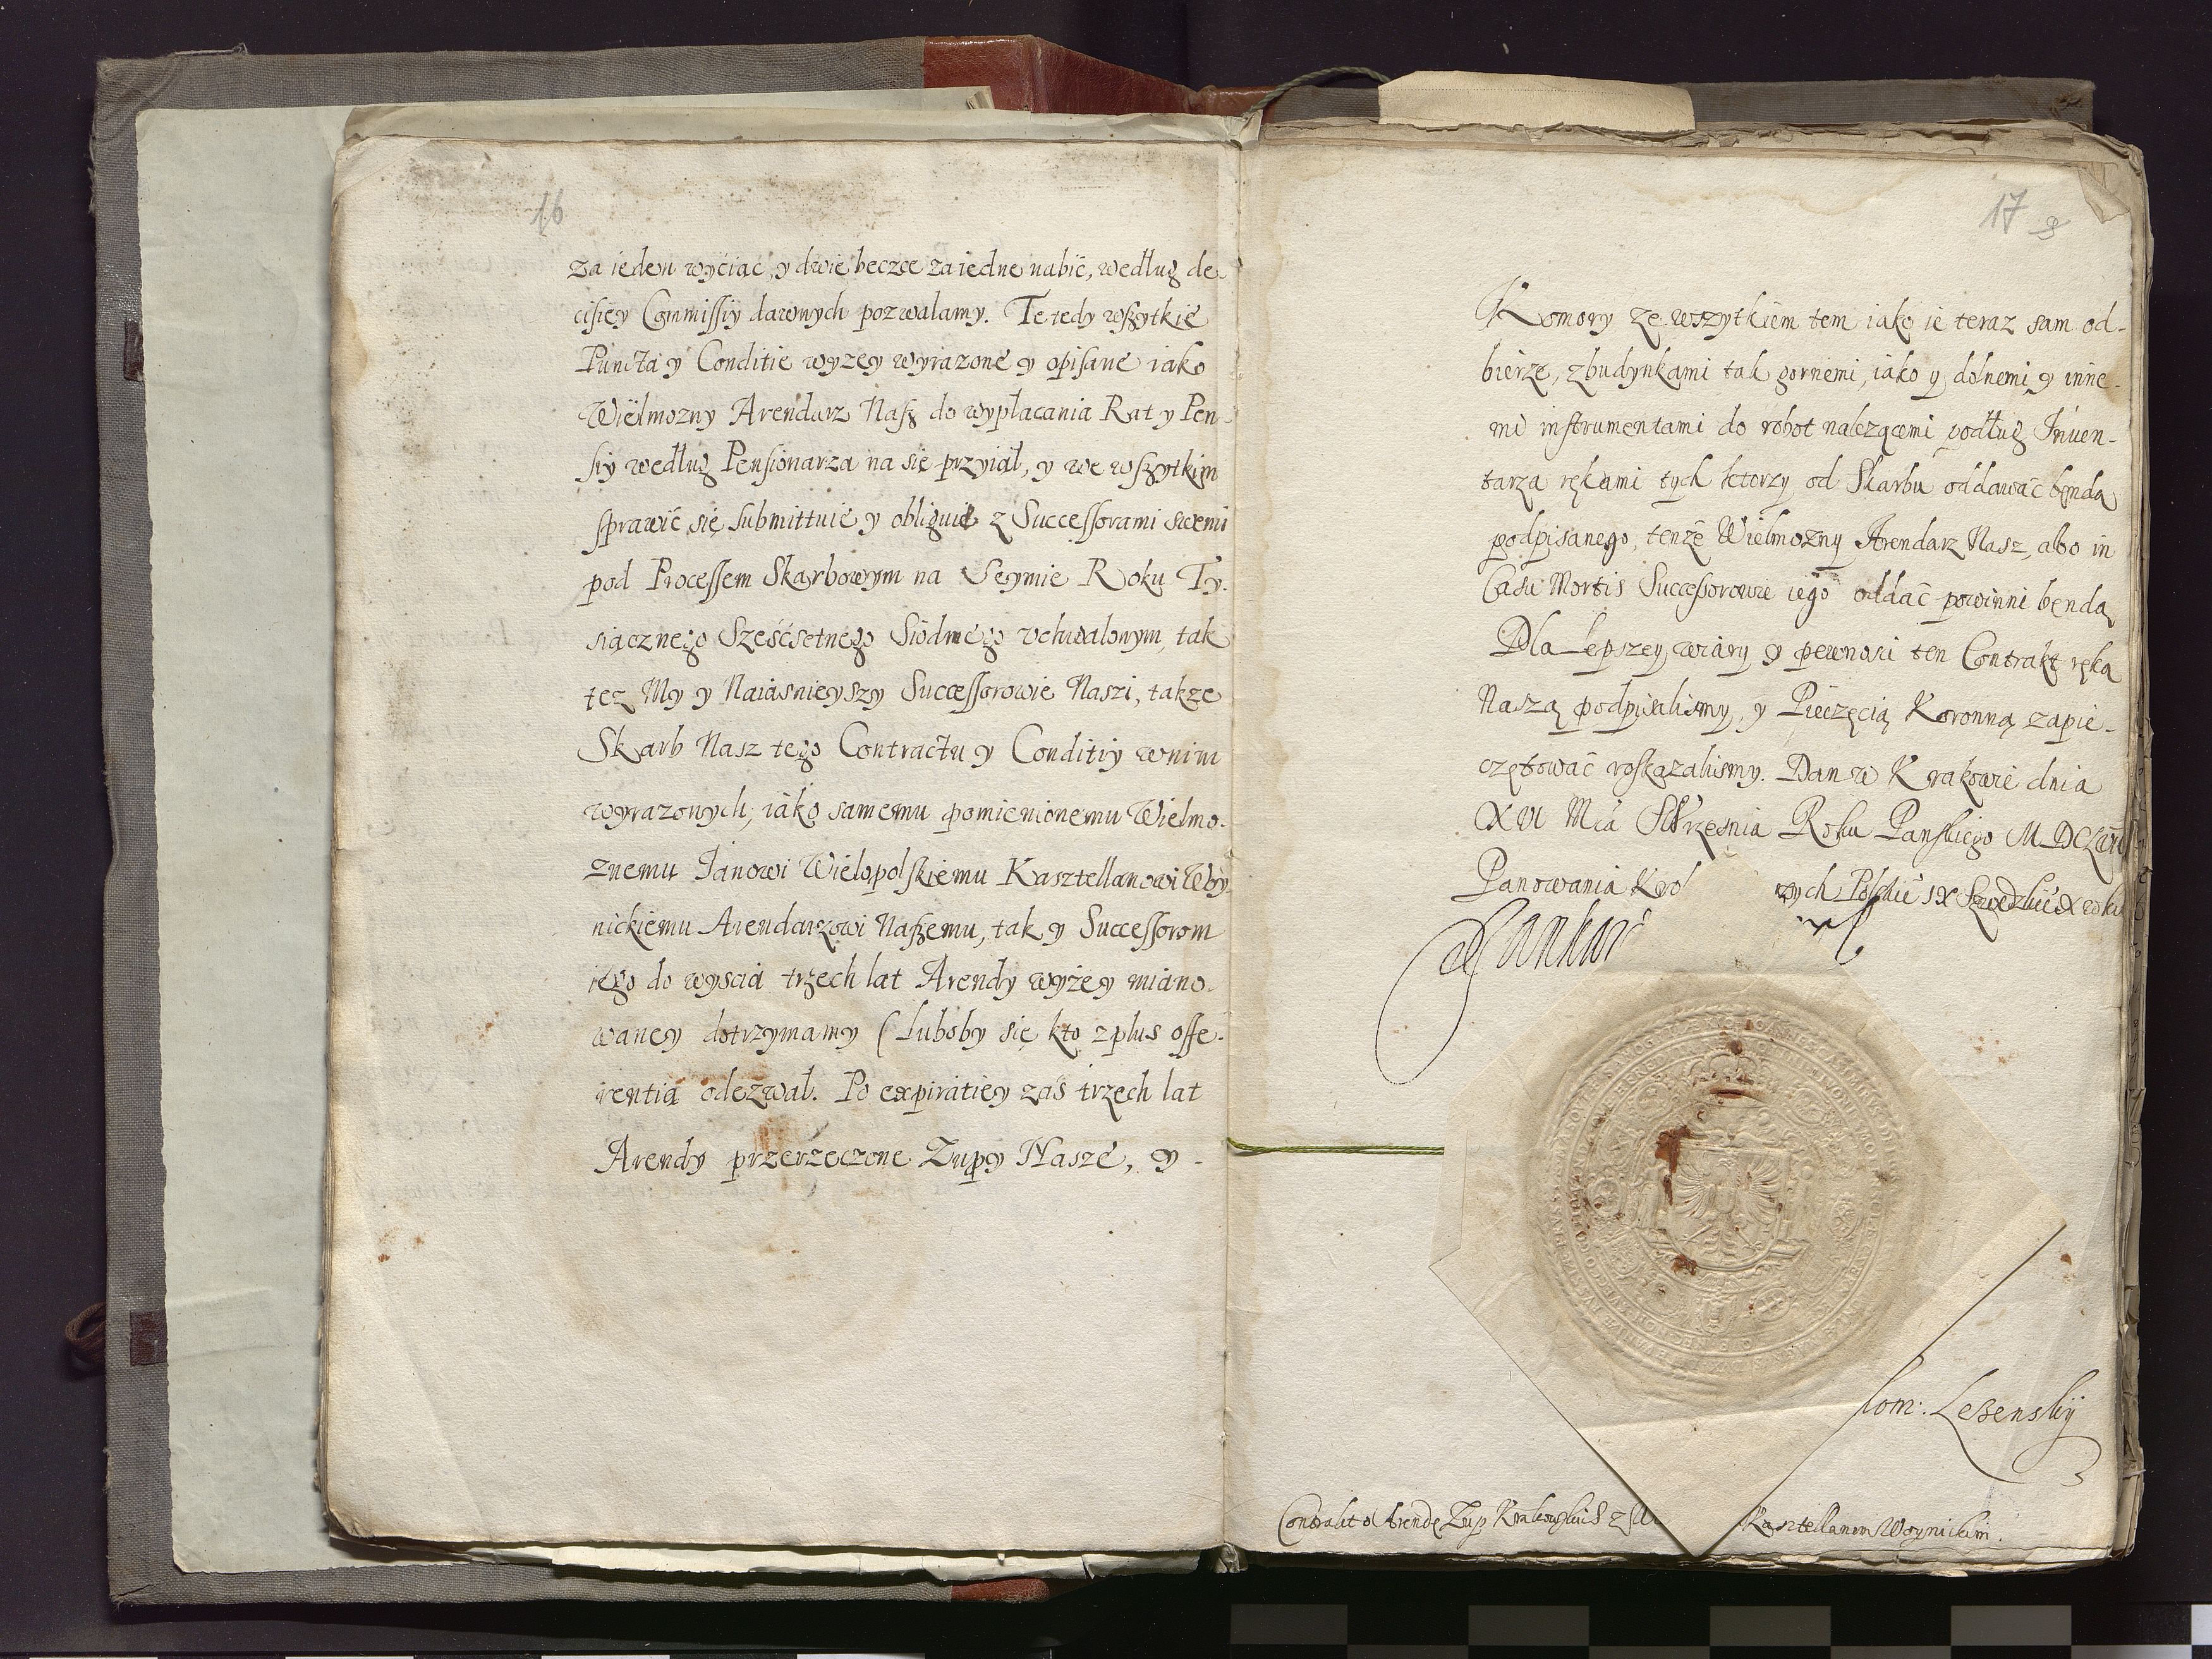 16
za ieden wyciąc, y dwie beczce za iedne nabić, według de-
cisiey Commissiy dawnych pozwalamy. Te tedy wszytkie
Puncta y Conditie wyzey wyrazone y opisane iako
Wielmozny Arendarz Nasz do wypłacania Rat y Pen-
siy według Pensionarza na się przyiął, y we wszytkim
sprawić się submittuie y obliguie z Successorami swemi
pod Processem Skarbowym na Seymie Roku Ty-
siącznego Sześćsetnego Siodmego vchwalonym, tak
tez My y Naiasnieyszy Successorowie Naszi, takze
Skarb Nasz tego Contractu y Conditiy w nim
wyrazonych, iako samemu pomienionemu Wielmo-
znemu Janowi Wielopolskiemu Kasztellanowi Woy-
nickiemu Arendarzowi Naszemu, tak y Successorom
iego do wyscia trzech lat Arendy wyżey miano-
waney dotrzymamy (Luboby się kto z plus offe-
rentią odezwał. Po expiratiey zaś trzech lat
Arendy przerzeczone Zupy Nasze, y -
17
Komory ze wszytkiem tem iako ie teraz sam od-
bierze, z budynkami tak gornemi, iako y dolnemi y inne-
mi instrumentami do robot nalezącemi podług Inuen-
tarza rękami tych ktorzy od Skarbu oddawać będą
podpisanego, tenże Wielmozny Arendarz Nasz, abo in
Casu Mortis Successorowie iego oddać powinni będą
Dla Lepszey wiary y pewnosci ten Contrakt ręką
Naszą podpisalismy, y Pieczęcią Koronną zapie-
czętować roskazalismy. Dan w Krakowie dnia
XVI Mca Września Roku Panskiego
Panowania Krol
Jan Kazi
Lezenskÿ
Contrakt o Arendę Zup Krakowskich z
Kasztellanem Woynickim.